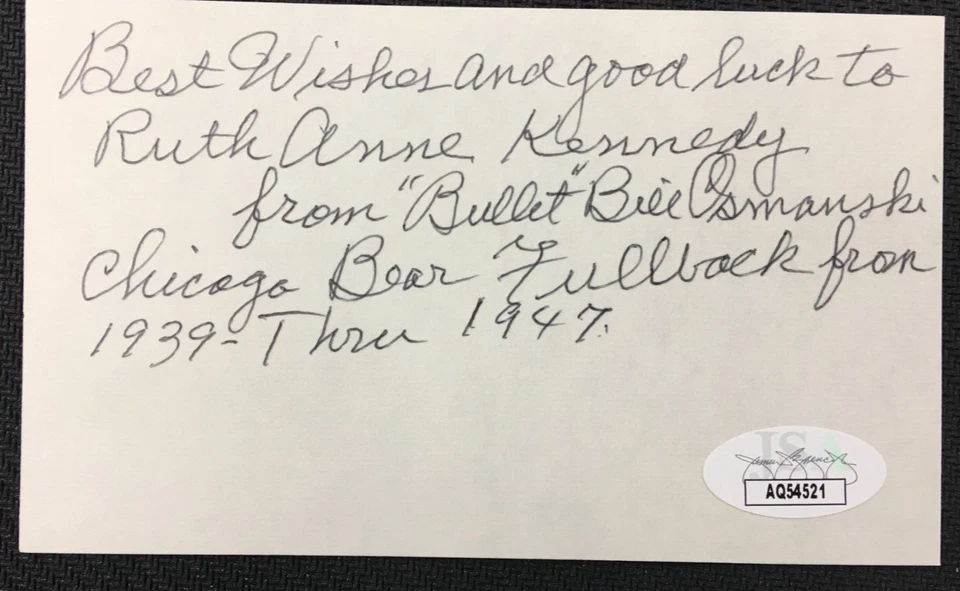 Best Wishes and good luck to
Ruth Anne Kennedy
from "Bullet" Bill Osmanski
Chicago Bear Fullback from
1939- Thru 1947.
JSA
AQ54521